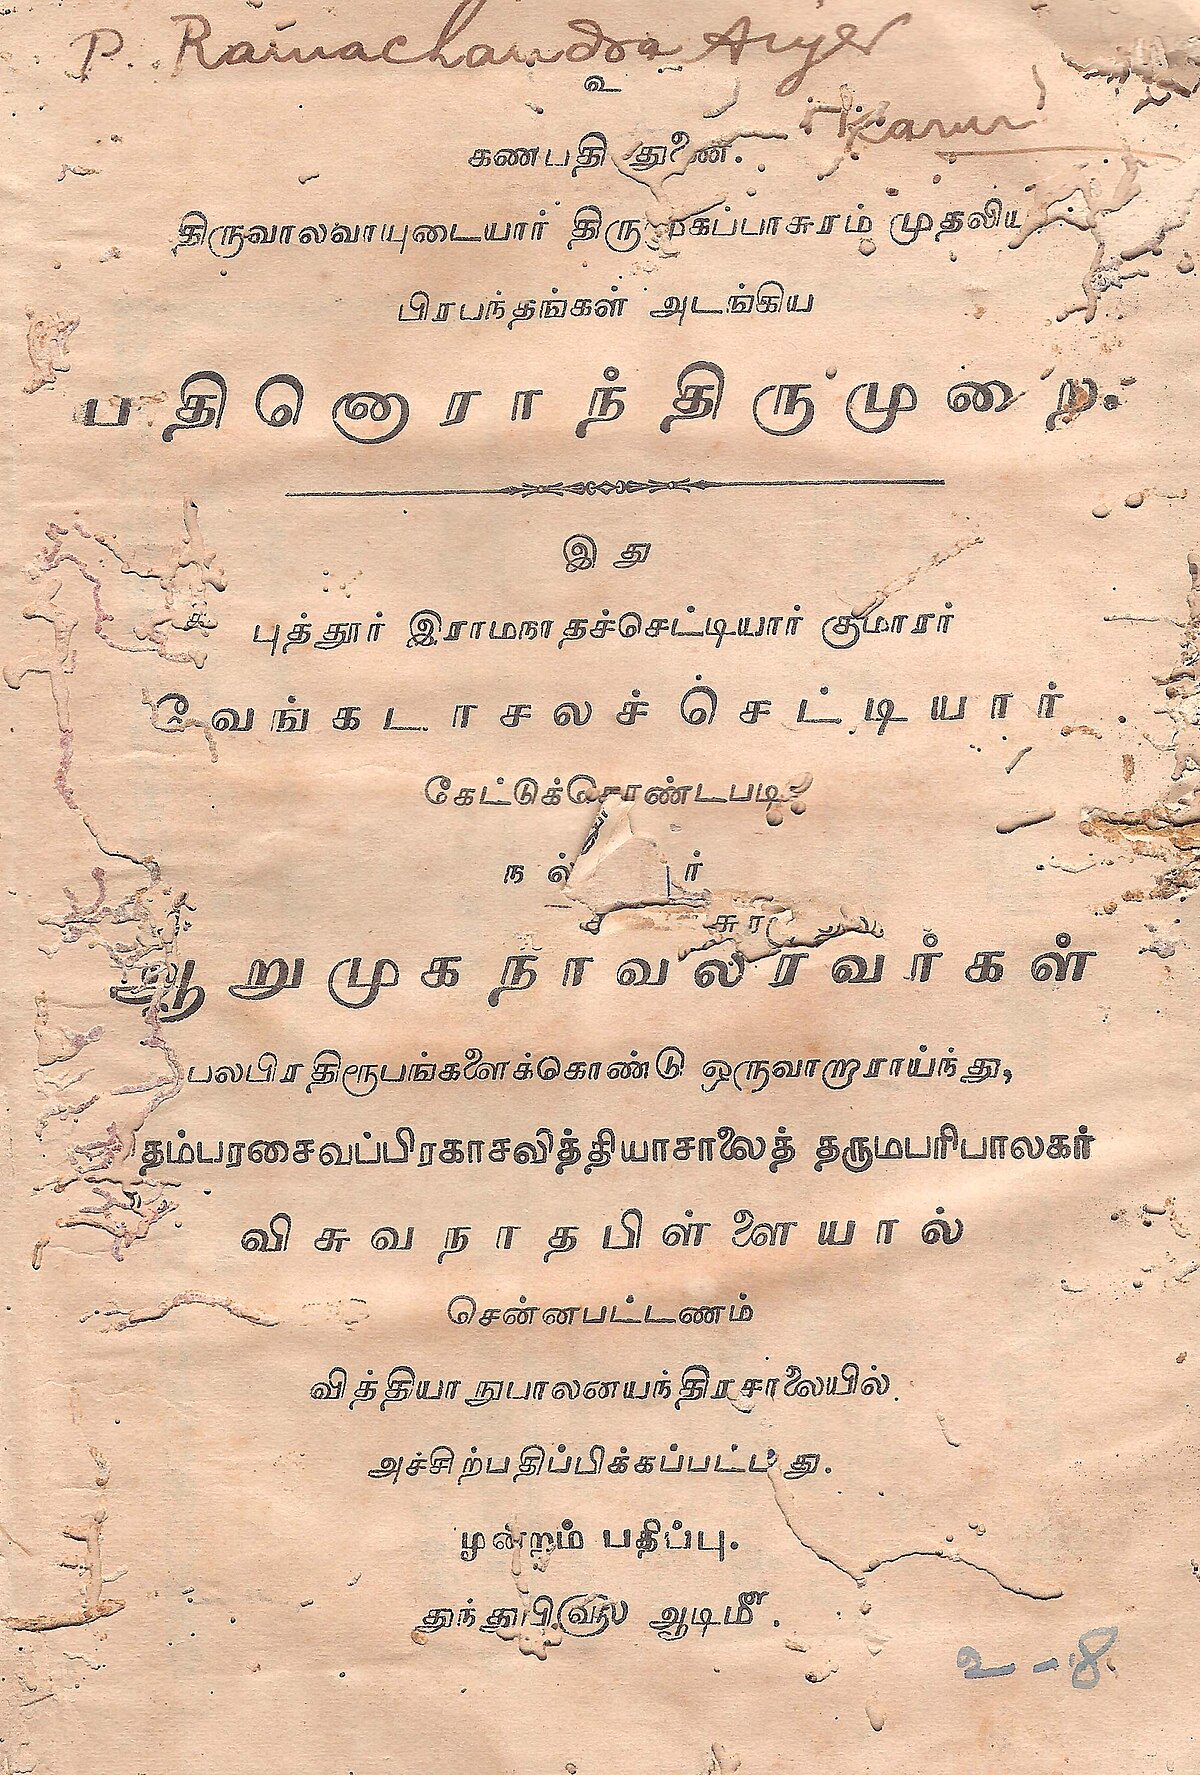 P. Ramachandra Aiyer
உ
Karur
கணபதி துணை.
திருவாலவாயுடையார் முதலிய
பிரபந்தங்கள் அடங்கிய
பதினொராந்திருமுறை.
இது
புத்தூர் இராமநாதச்செட்டியார் குமாரர்
வேங்கடாசலச்செட்டியார்
கேட்டுக்கொண்டபடி
ஆறுமுகநாவலரவர்கள்
பலபிரதிரூபங்களைக்கொண்டு ஒருவாறாராய்ந்து,
சைவப்பிரகாசவித்தியாசாலைத் தருமபரிபாலகர்
விசுவநாதபிள்ளையால்
சென்னபட்டணம்
வித்தியாநுபாலனயந்திரசாலையில்
அச்சிற்பதிப்பிக்கப்பட்டது.
மூன்றாம் பதிப்பு.
துந்துபிவ௵ ஆடிமீ.
உ - 8